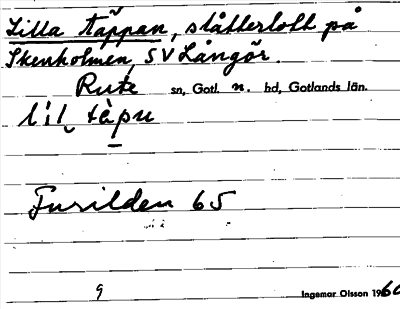 Lilla täppan, slåtterlott på
Skenholmen, SV Långör.
Rute sn, Gotl. n. hd, Gotlands län.
li̍l täpu
Furilden 65
9 Ingemar Olsson 1960